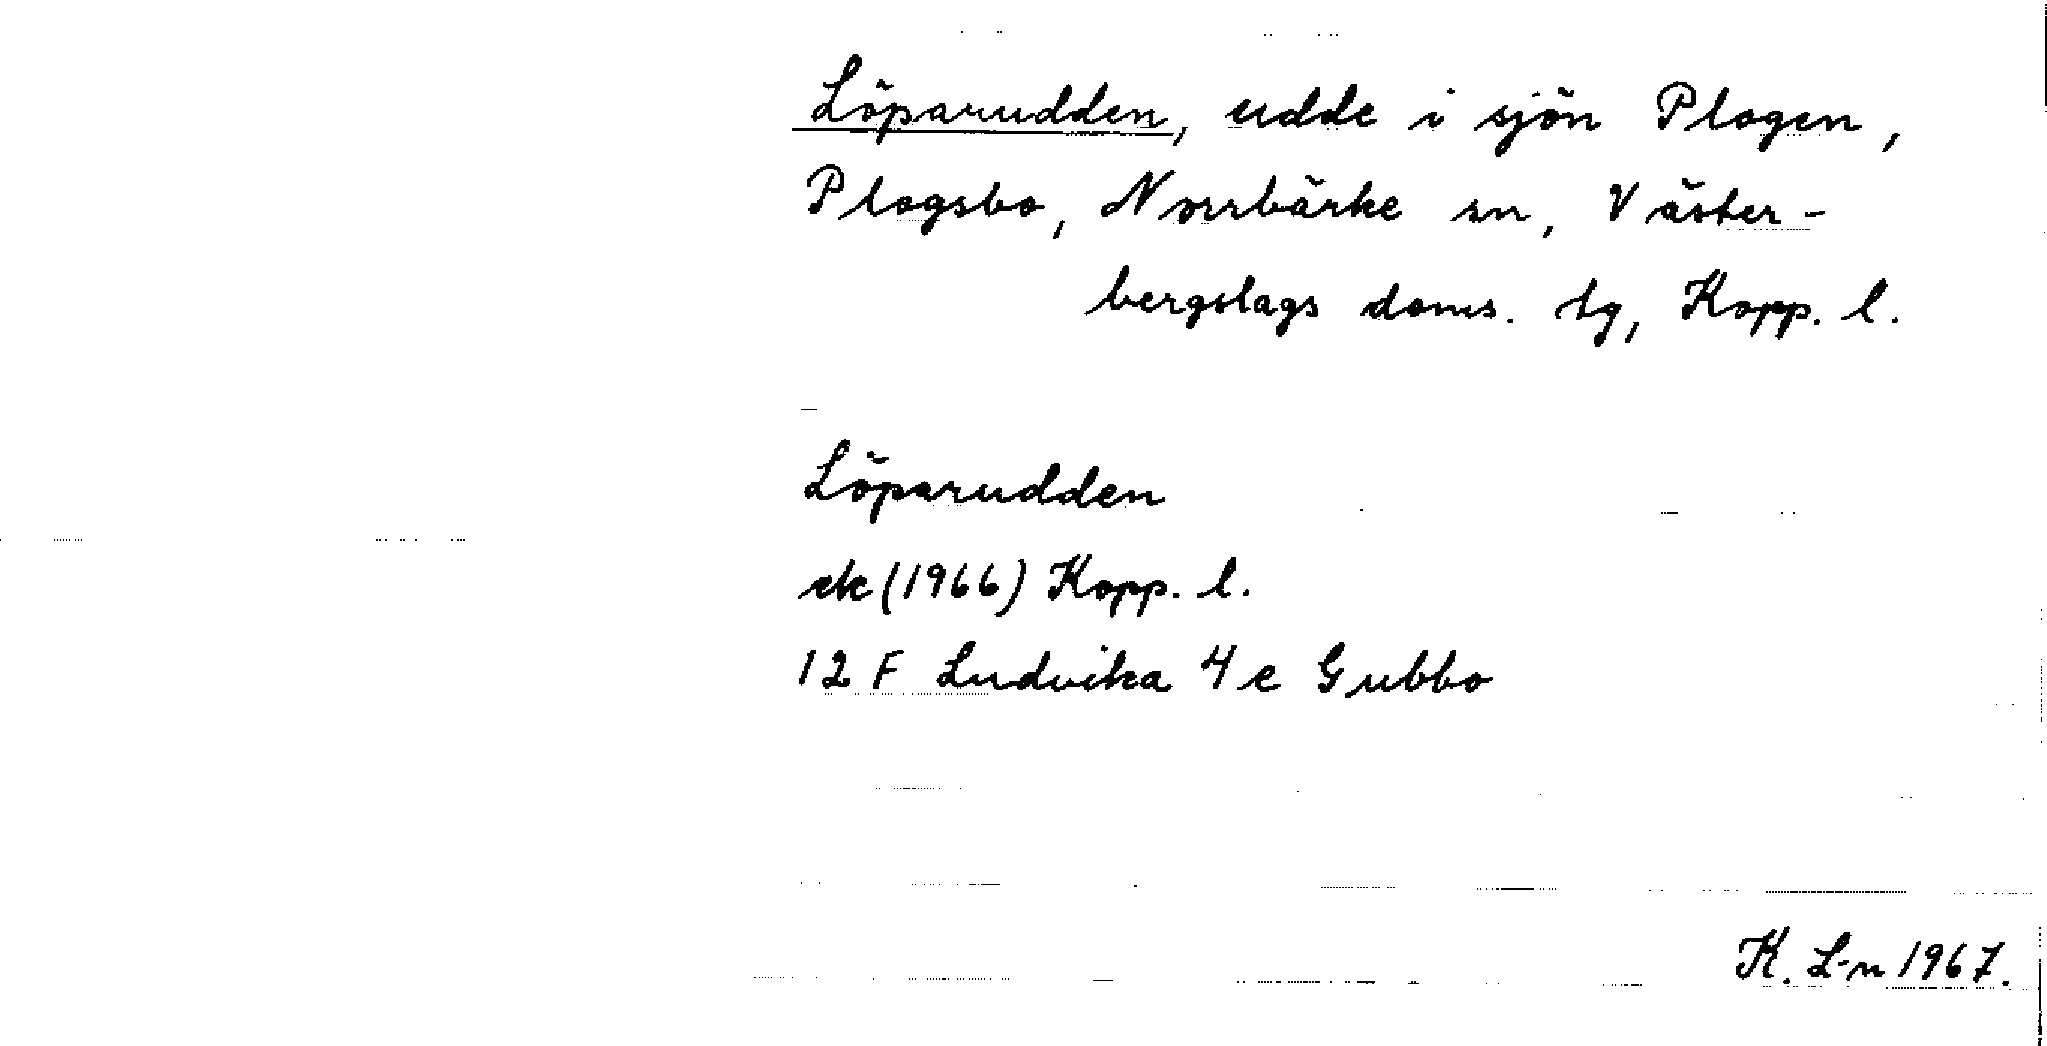 Löparudden, udde i sjön Plogen,
Plogsbo, Norrbärke sn, Väster-
bergslags doms. tg, Kopp. l.
Löparudden
ek (1966) Kopp. l.
12 F Ludvika 4e Gubbo
K. L-n 1967.